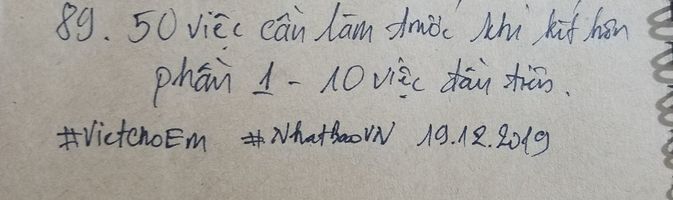 89. 50 việc cần làm trước khi kết hôn
phần 1 - 10 việc đầu tiên.
#VietchoEm #NhatBaoVN 19.12.2019